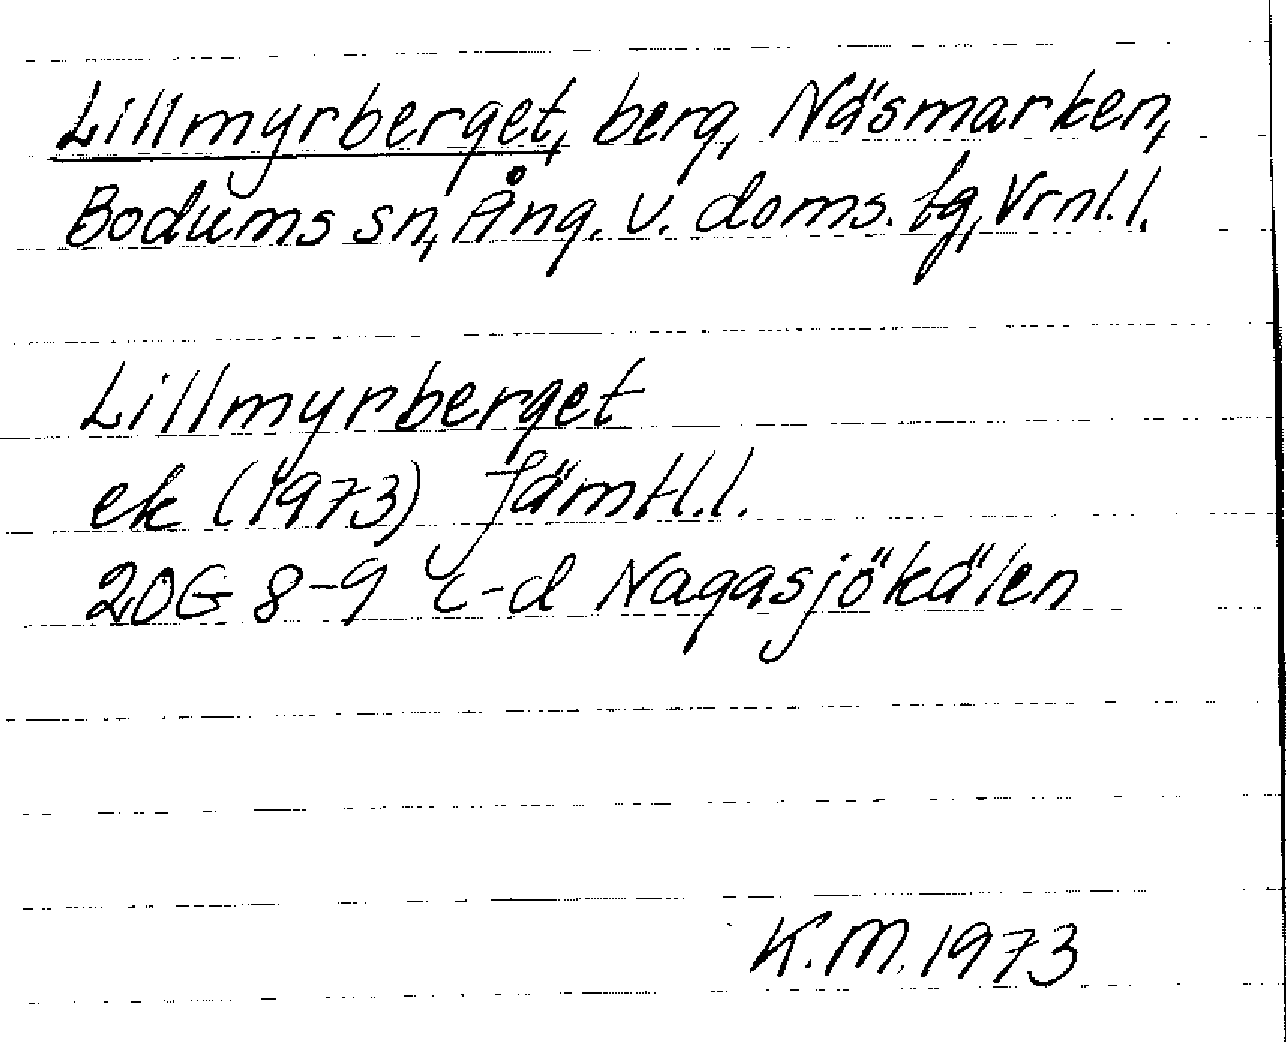 Lillmyrberget, berg, Näsmarken,
Bodums sn, Ång. v. doms. tg, Vrnl.l.
Lillmyrberget
ek (1973) Jämtl.l.
20G 8-9 c-d Nagasjökälen
K.M. 1973